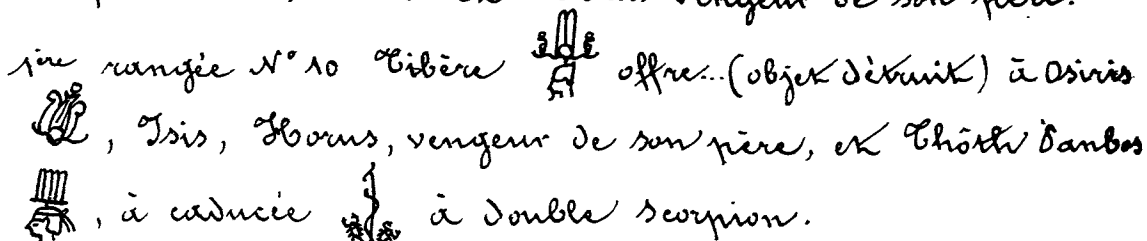 vengeur de son père.
1ère rangée N° 10 Tibère offre...(objet détruit) à Osiris
, Isis, Horus, vengeur de son père, et Thôth d'anbos
, à caducée à double scorpion.